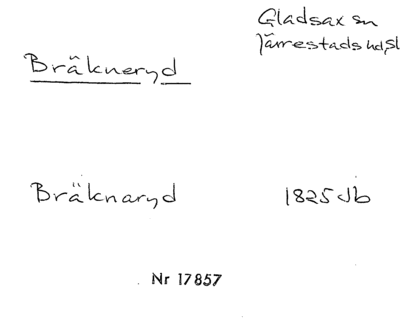 Gladsax sn
Järrestads hd, Sk
Bräkneryd
Bräknaryd 1825 Jb
Nr 17857